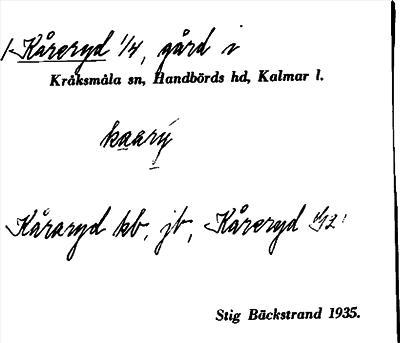 Kåreryd 1/4, gård i
Kråksmåla sn, Handbörds hd, Kalmar l.
kaarý
Kåraryd kb, jb, Kåreryd
Stig Bäckstrand 1935.